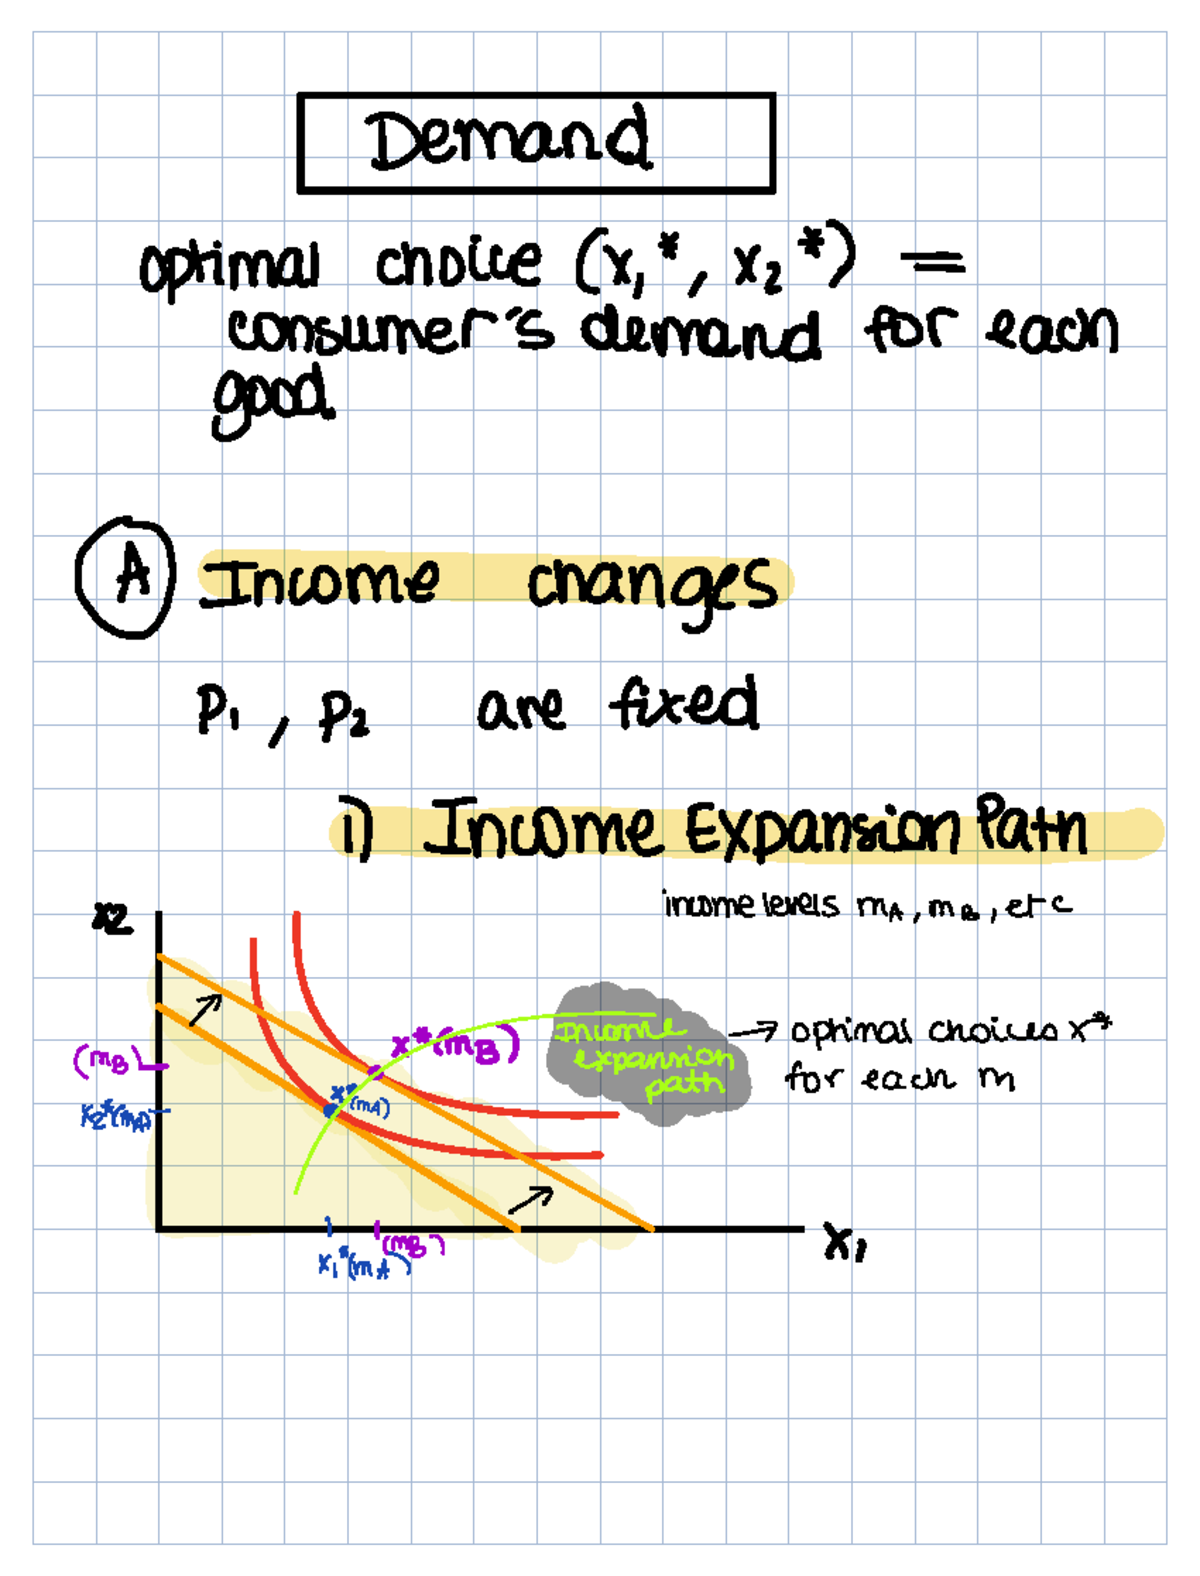 Demand
optimal choice (x₁*, x₂*) =
consumer's demand for each
good
A Income changes
P₁, P₂ are fixed
i) Income Expansion Path
income levels mA, mB, etc
x2
x*(mB)
Income
expansion
path
→ optimal choices x*
for each m
(mB)
x*(mA)
x₂*(mA)
(mB)
x₁*(mA)
x₁